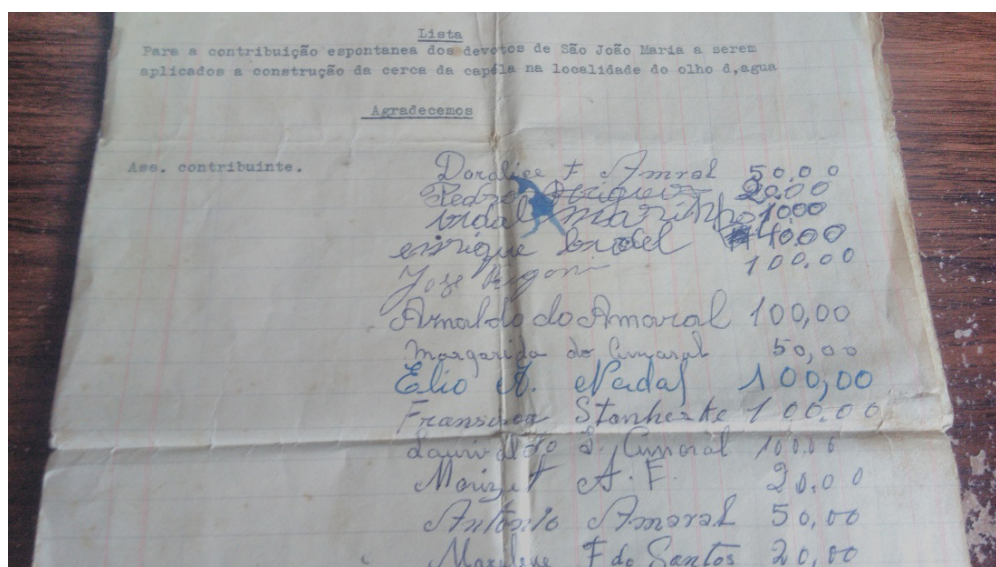 Lista
Para a contribuição espontanea dos devotos de São João Maria a serem
aplicados a construção da cerca da capéla na localidade do olho d,agua
Agradecemos
Ass. contribuinte.
Doralice F Amral 50.00
Pedro 20.00
vidal marinho 1000
enrique budel 40.00
Jose Rigoni 100.00
Arnaldo do Amaral 100,00
Margarida do Amaral 50,00
Elio A. Nadal 100,00
100.00
d. Amaral 100.00
A. F. 20.00
Antonio Amaral 50,00
F do Santos 20,00